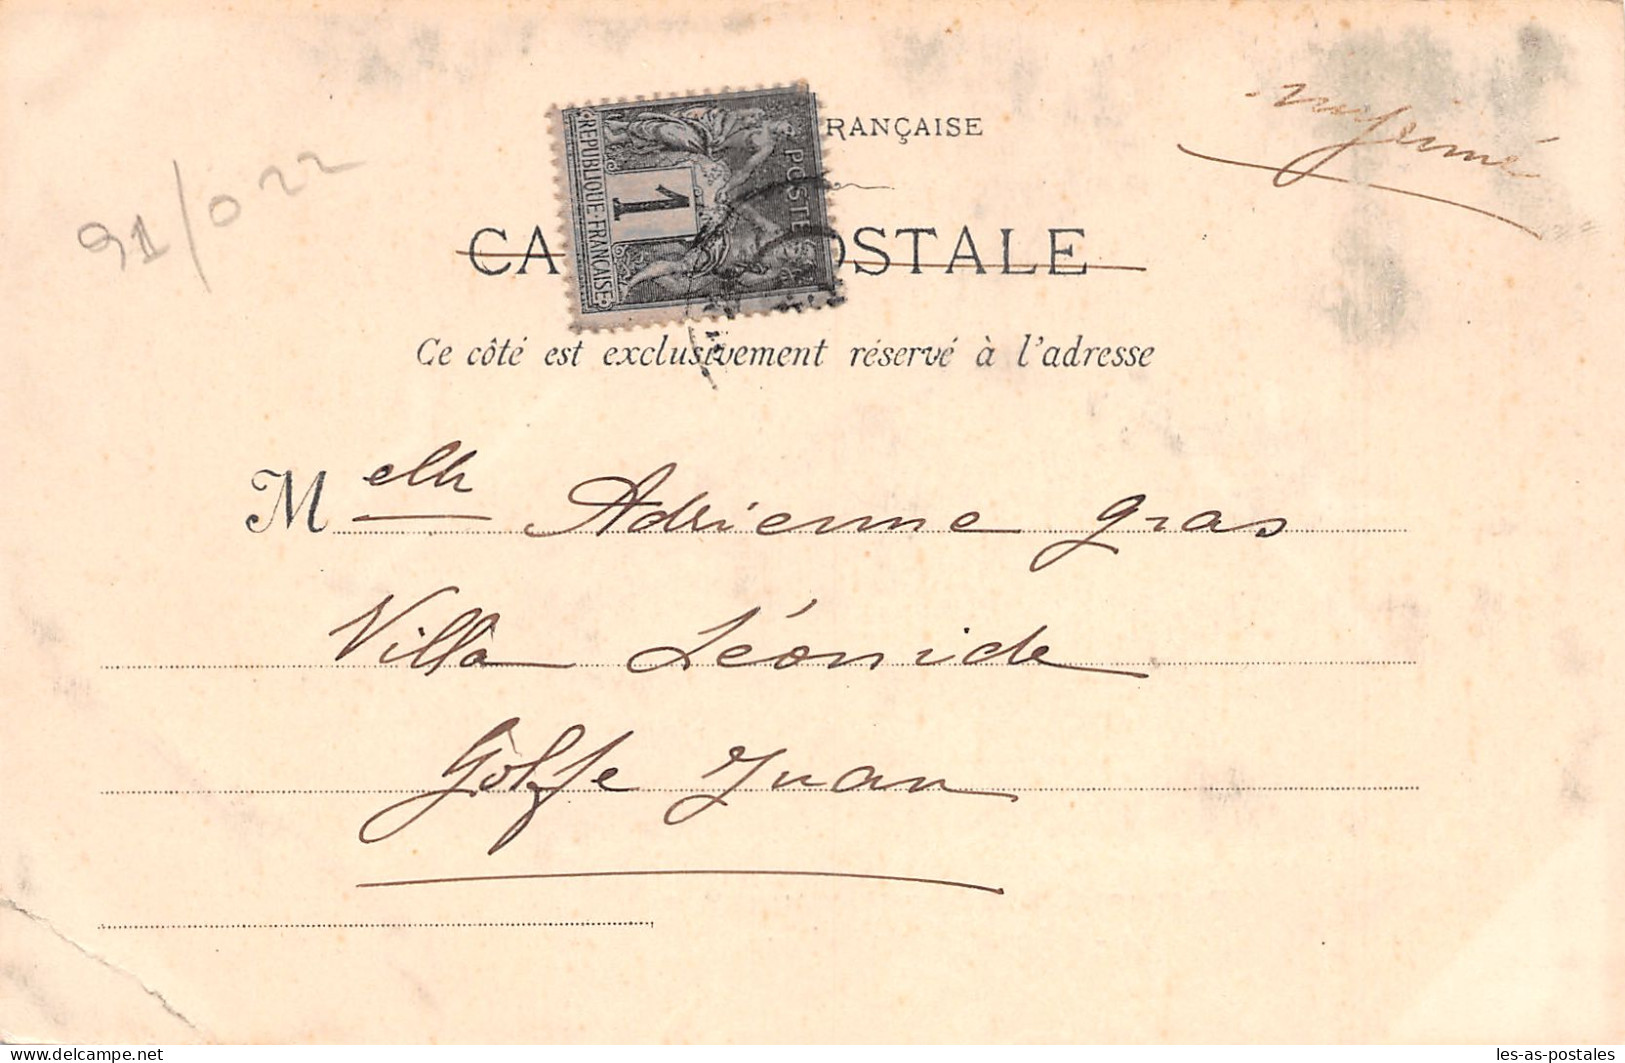 RANÇAISE
imprimé
91/022
RÉPUBLIQUE FRANÇAISE
1
POSTE
CA OSTALE
Ce côté est exclusivement réservé à l'adresse
Melle Adrienne Gras
Villa Léonide
Golfe Juan
les-as-postales
© delcampe.net